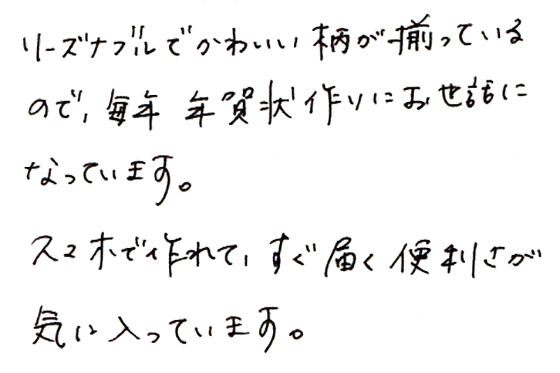 リーズナブルでかわいい柄が揃っている
ので、毎年 年賀状作りにお世話に
なっています。
スマホで作れて、すぐ届く便利さが
気に入っています。